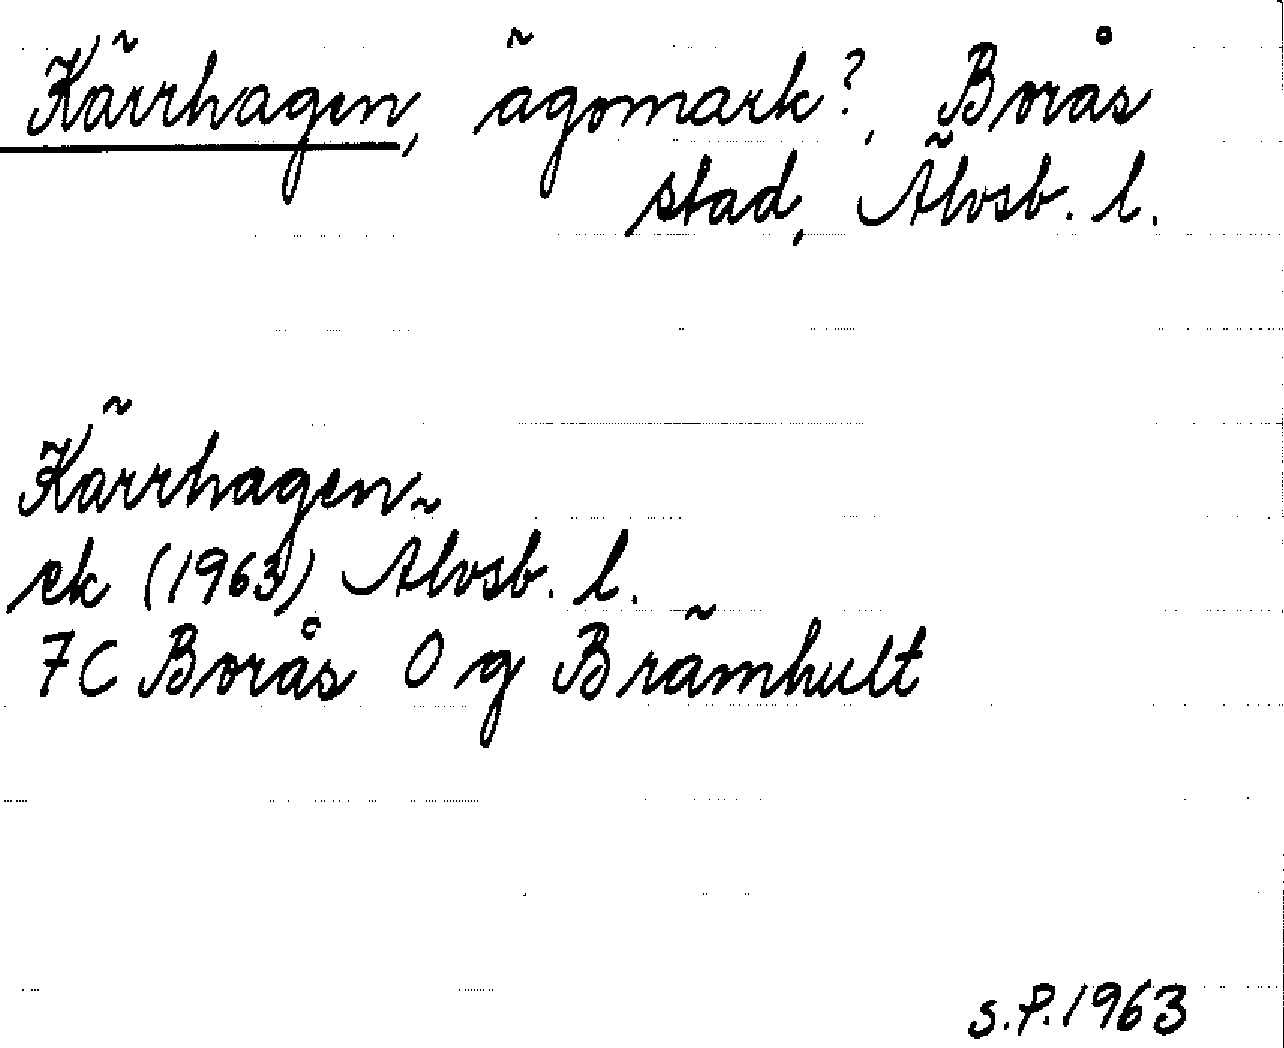 Kärrhagen, ägomark?, Borås
stad, Älvsb. l.
Kärrhagen
ek (1963) Älvsb. l.
7C Borås 0 g Brämhult
S.P. 1963